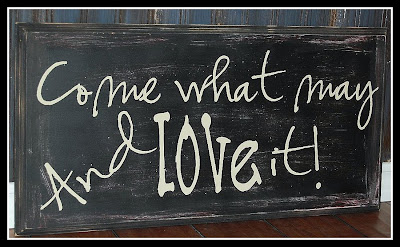 Come what may
And LOVE it!